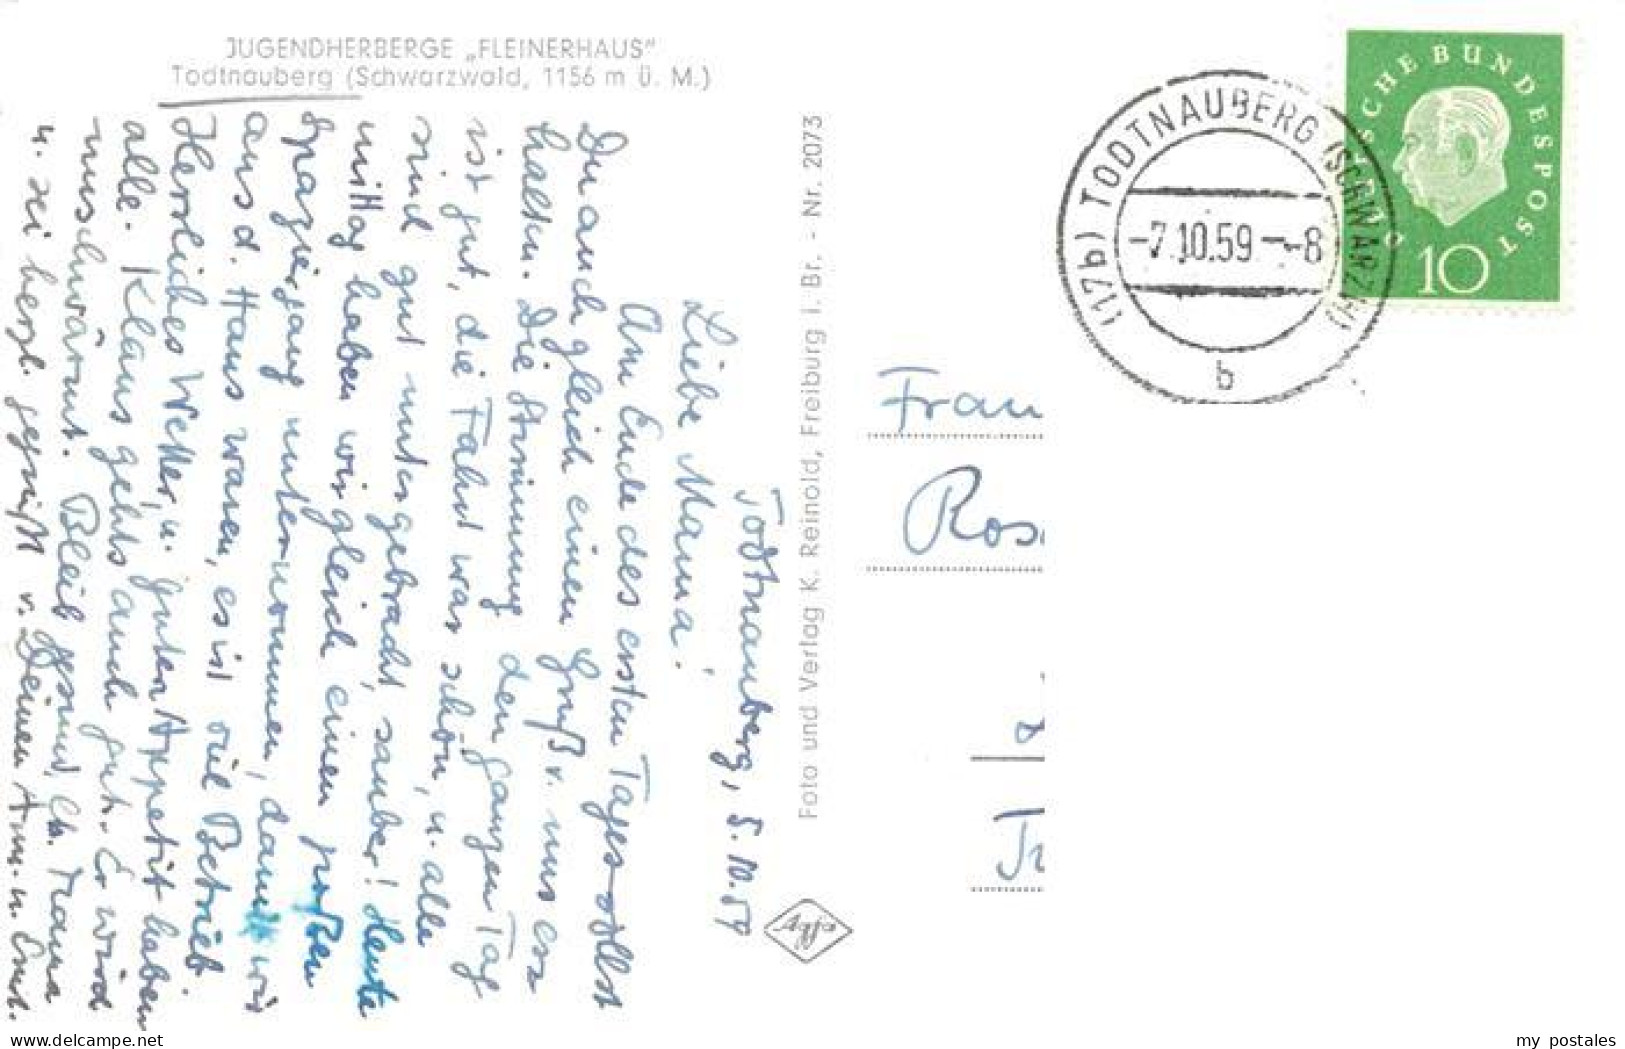 JUGENDHERBERGE „FLEINERHAUS"
Todtnauberg (Schwarzwald, 1156 m ü. M.)
Todtnauberg, 5.10.59
Liebe Mama!
Am Ende des ersten Tages sollst
Du auch gleich einen Gruß v. uns er-
halten. Die Stimmung den ganzen Tag
ist gut, die Fahrt war schön, u. alle
sind gut untergebracht, sauber! Heute
mittag haben wir gleich einen großen
Spaziergang unternommen, damit wir
aus d. Haus waren, es ist viel Betrieb.
Herrliches Wetter, u. guten Appetit haben
alle. Klaus gehts auch gut. Er wird
umschwärmt. Bleib gesund, lb. Mama
u. sei herzl. gegrüßt v. Deinen Ann. u. Ernst.
Foto und Verlag K. Reinold, Freiburg i. Br. - Nr. 2073
Agfa
(17b) TODTNAUBERG (SCHWARZW)
-7.10.59--8
b
DEUTSCHE BUNDESPOST
10
Frau
my postales
delcampe.net